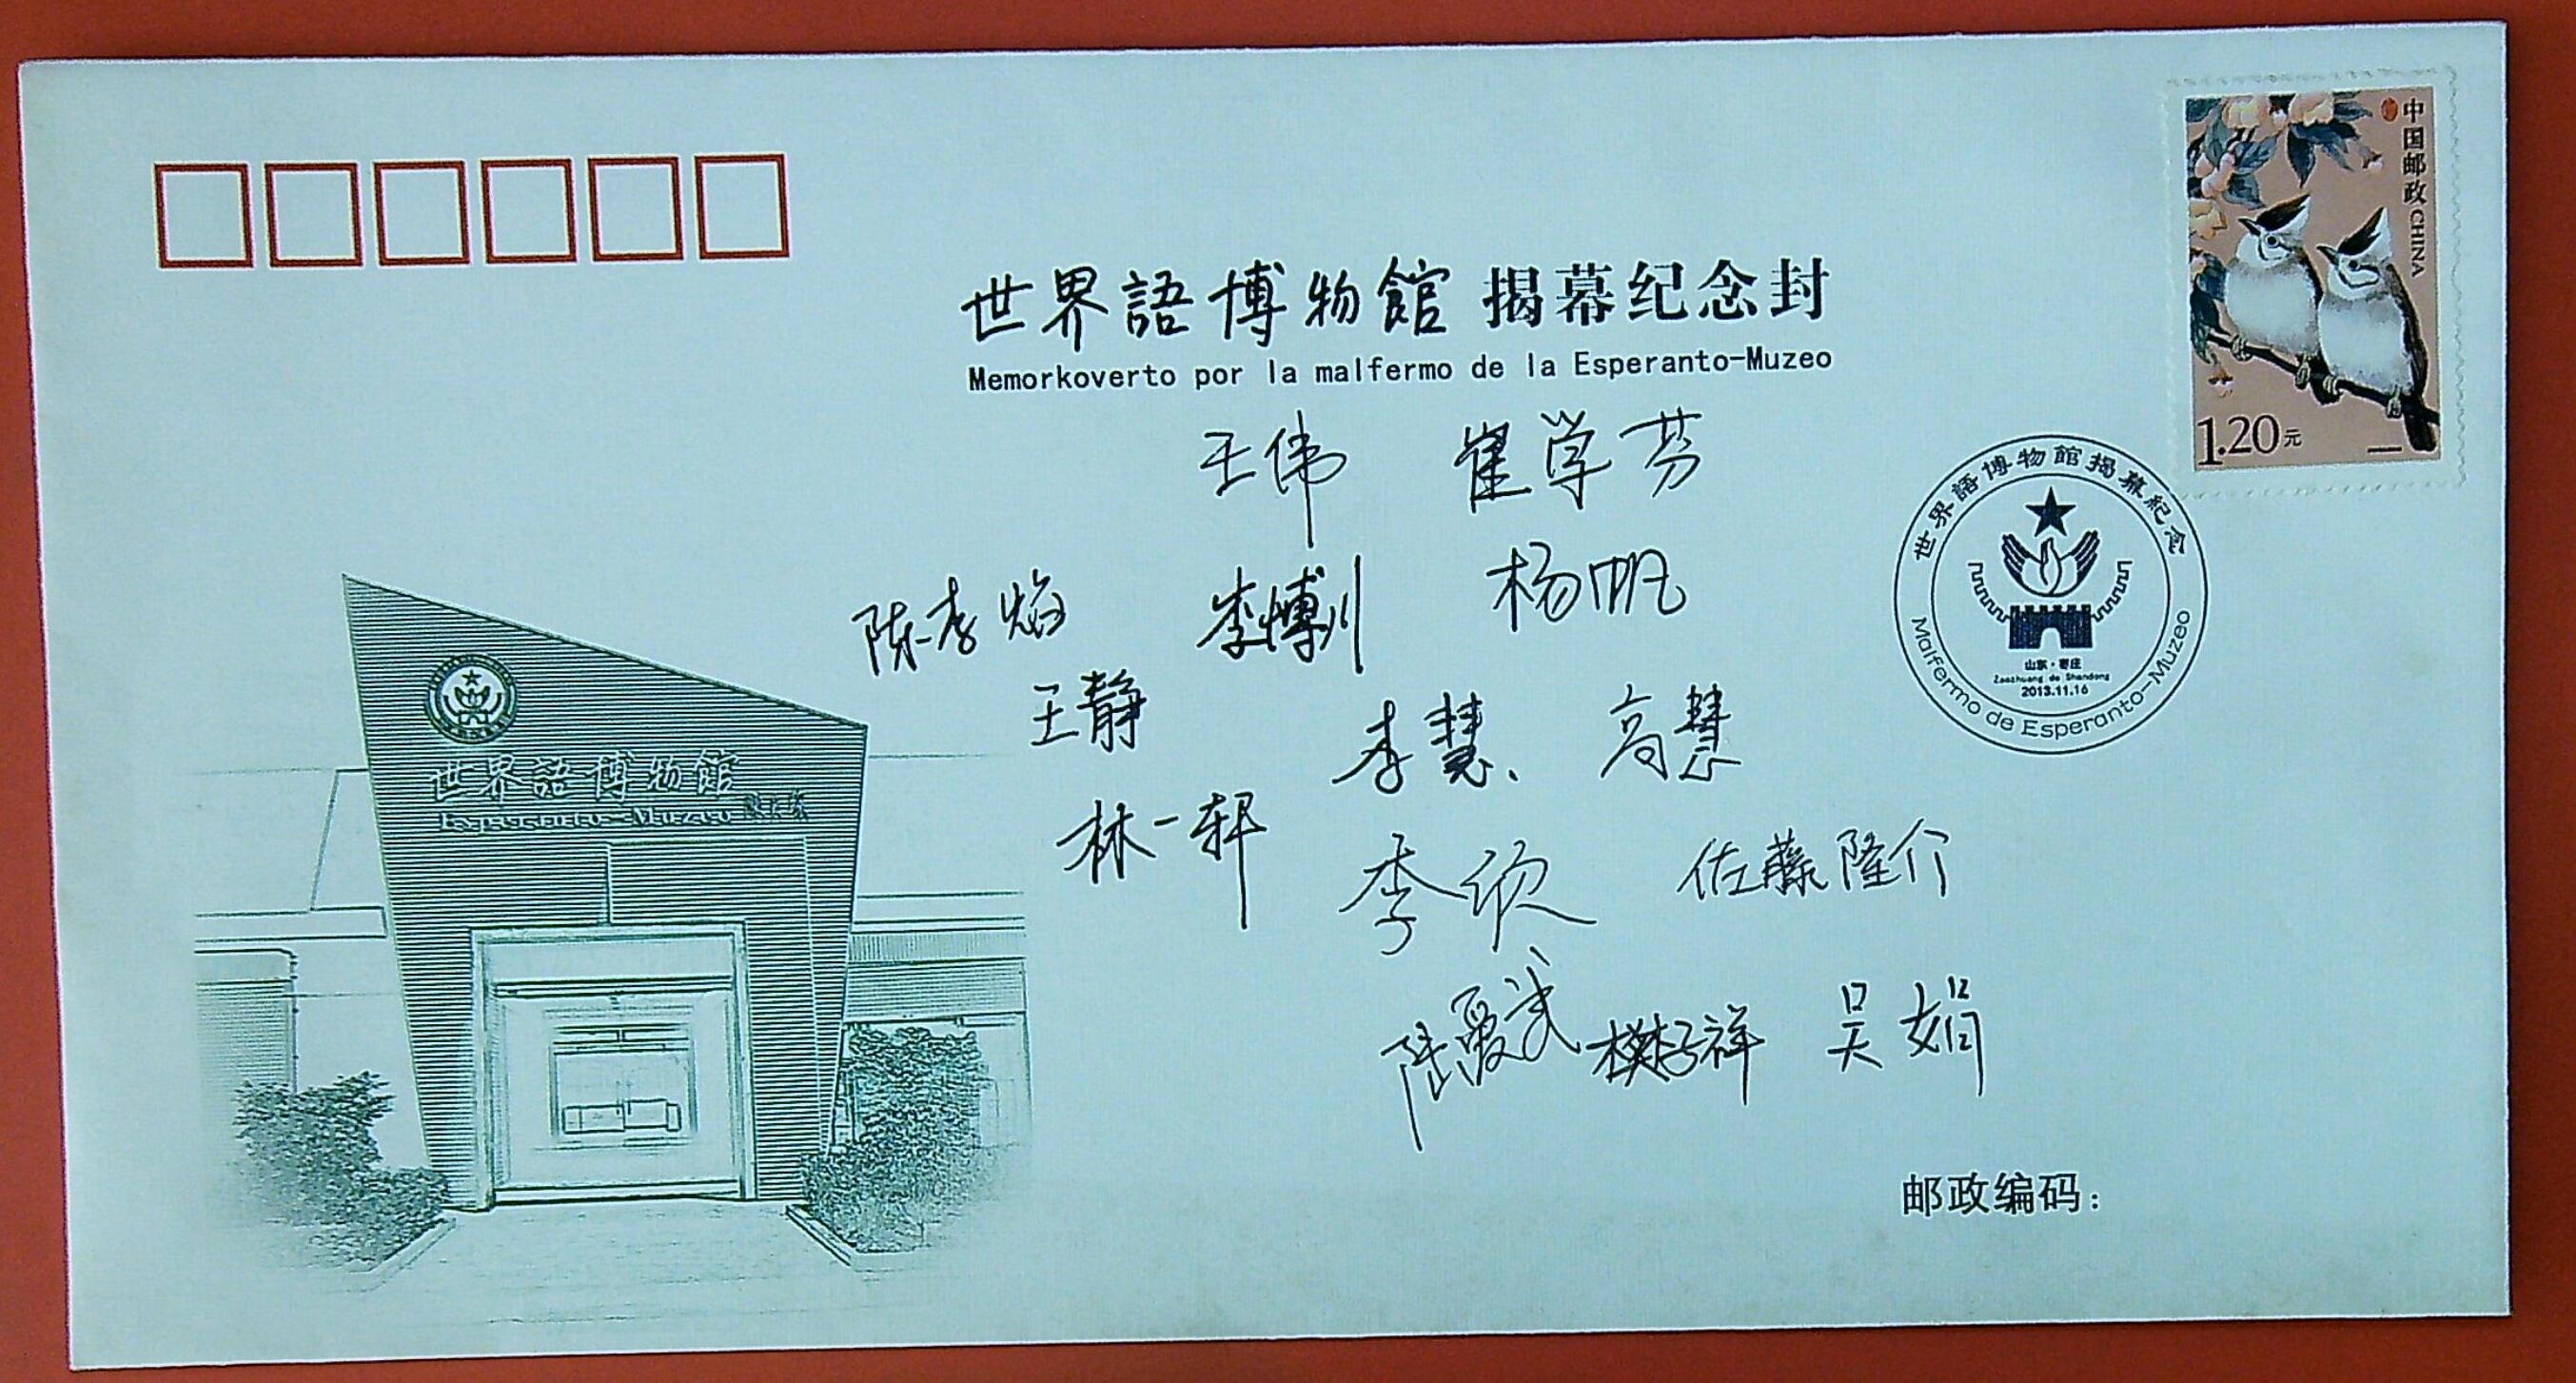 中国邮政 CHINA
1.20元
世界語博物館 揭幕纪念封
Memorkoverto por la malfermo de la Esperanto-Muzeo
王伟 崔学芬
陈孝焰 李博训 杨帆
王静 李慧 高慧
林一轩 李欣 佐藤隆介
樊子祥 吴娟
世界語博物館揭幕紀念
山东·枣庄
Zaozhuang de Shandong
2013.11.16
Malfermo de Esperanto-Muzeo
世界語博物館
Esperanto-Muzeo
邮政编码：